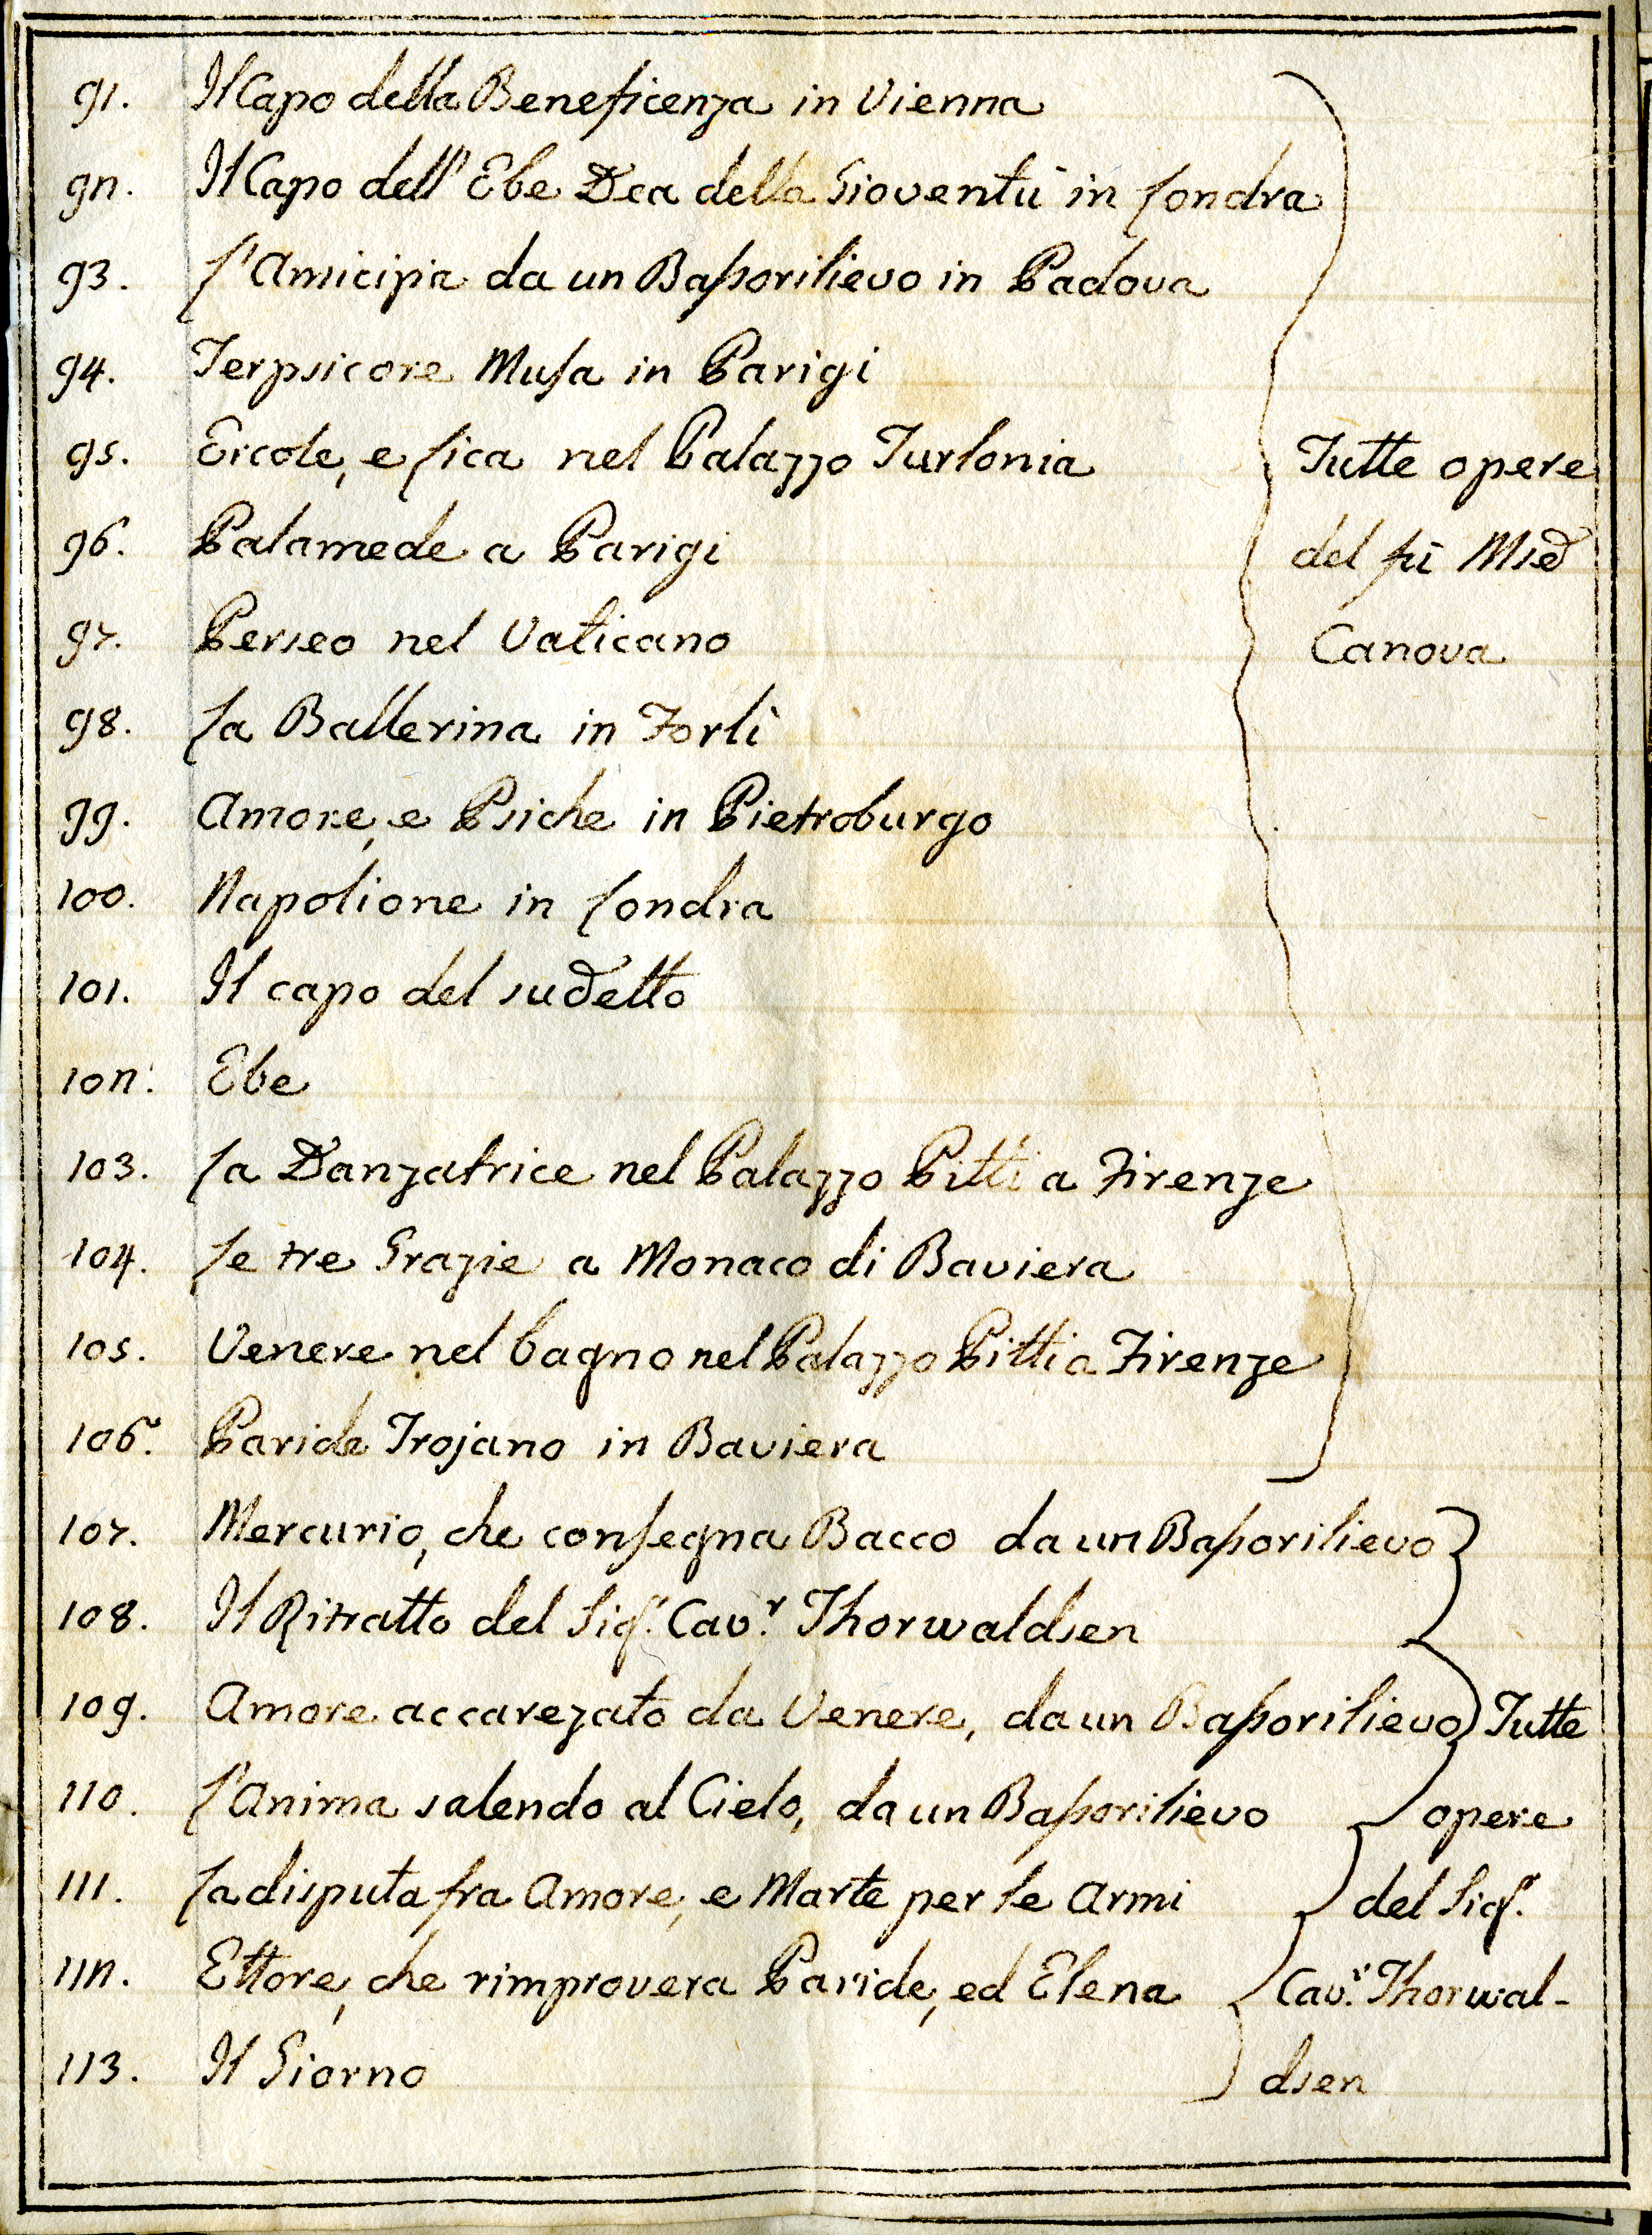 91. Il Capo della Beneficenza in Vienna
92. Il Capo dell' Ebe Dea della Gioventù in Londra
93. L'Amicizia da un Bassorilievo in Padova
94. Terpsicore Musa in Parigi
95. Ercole, e Lica nel Palazzo Turlonia
96. Palamede a Parigi
97. Perseo nel Vaticano
98. La Ballerina in Forlì
99. Amore, e Psiche in Pietroburgo
100. Napolione in Londra
101. Il capo del sudetto
102. Ebe
103. La Danzatrice nel Palazzo Pitti a Firenze
104. Le tre Grazie a Monaco di Baviera
105. Venere nel bagno nel Palazzo Pitti a Firenze
106. Paride Trojano in Baviera
Tutte opere
del fù
Canova
107. Mercurio, che consegna Bacco da un Bassorilievo
108. Il Ritratto del Sigr. Cavr. Thorwaldsen
109. Amore accarezato da Venere, da un Bassorilievo
110. L'Anima salendo al Cielo, da un Bassorilievo
111. La disputa fra Amore, e Marte per le Armi
112. Ettore, che rimprovera Paride, ed Elena
113. Il Giorno
Tutte
opere
del Sigr.
Cavr. Thorwal-
dsen